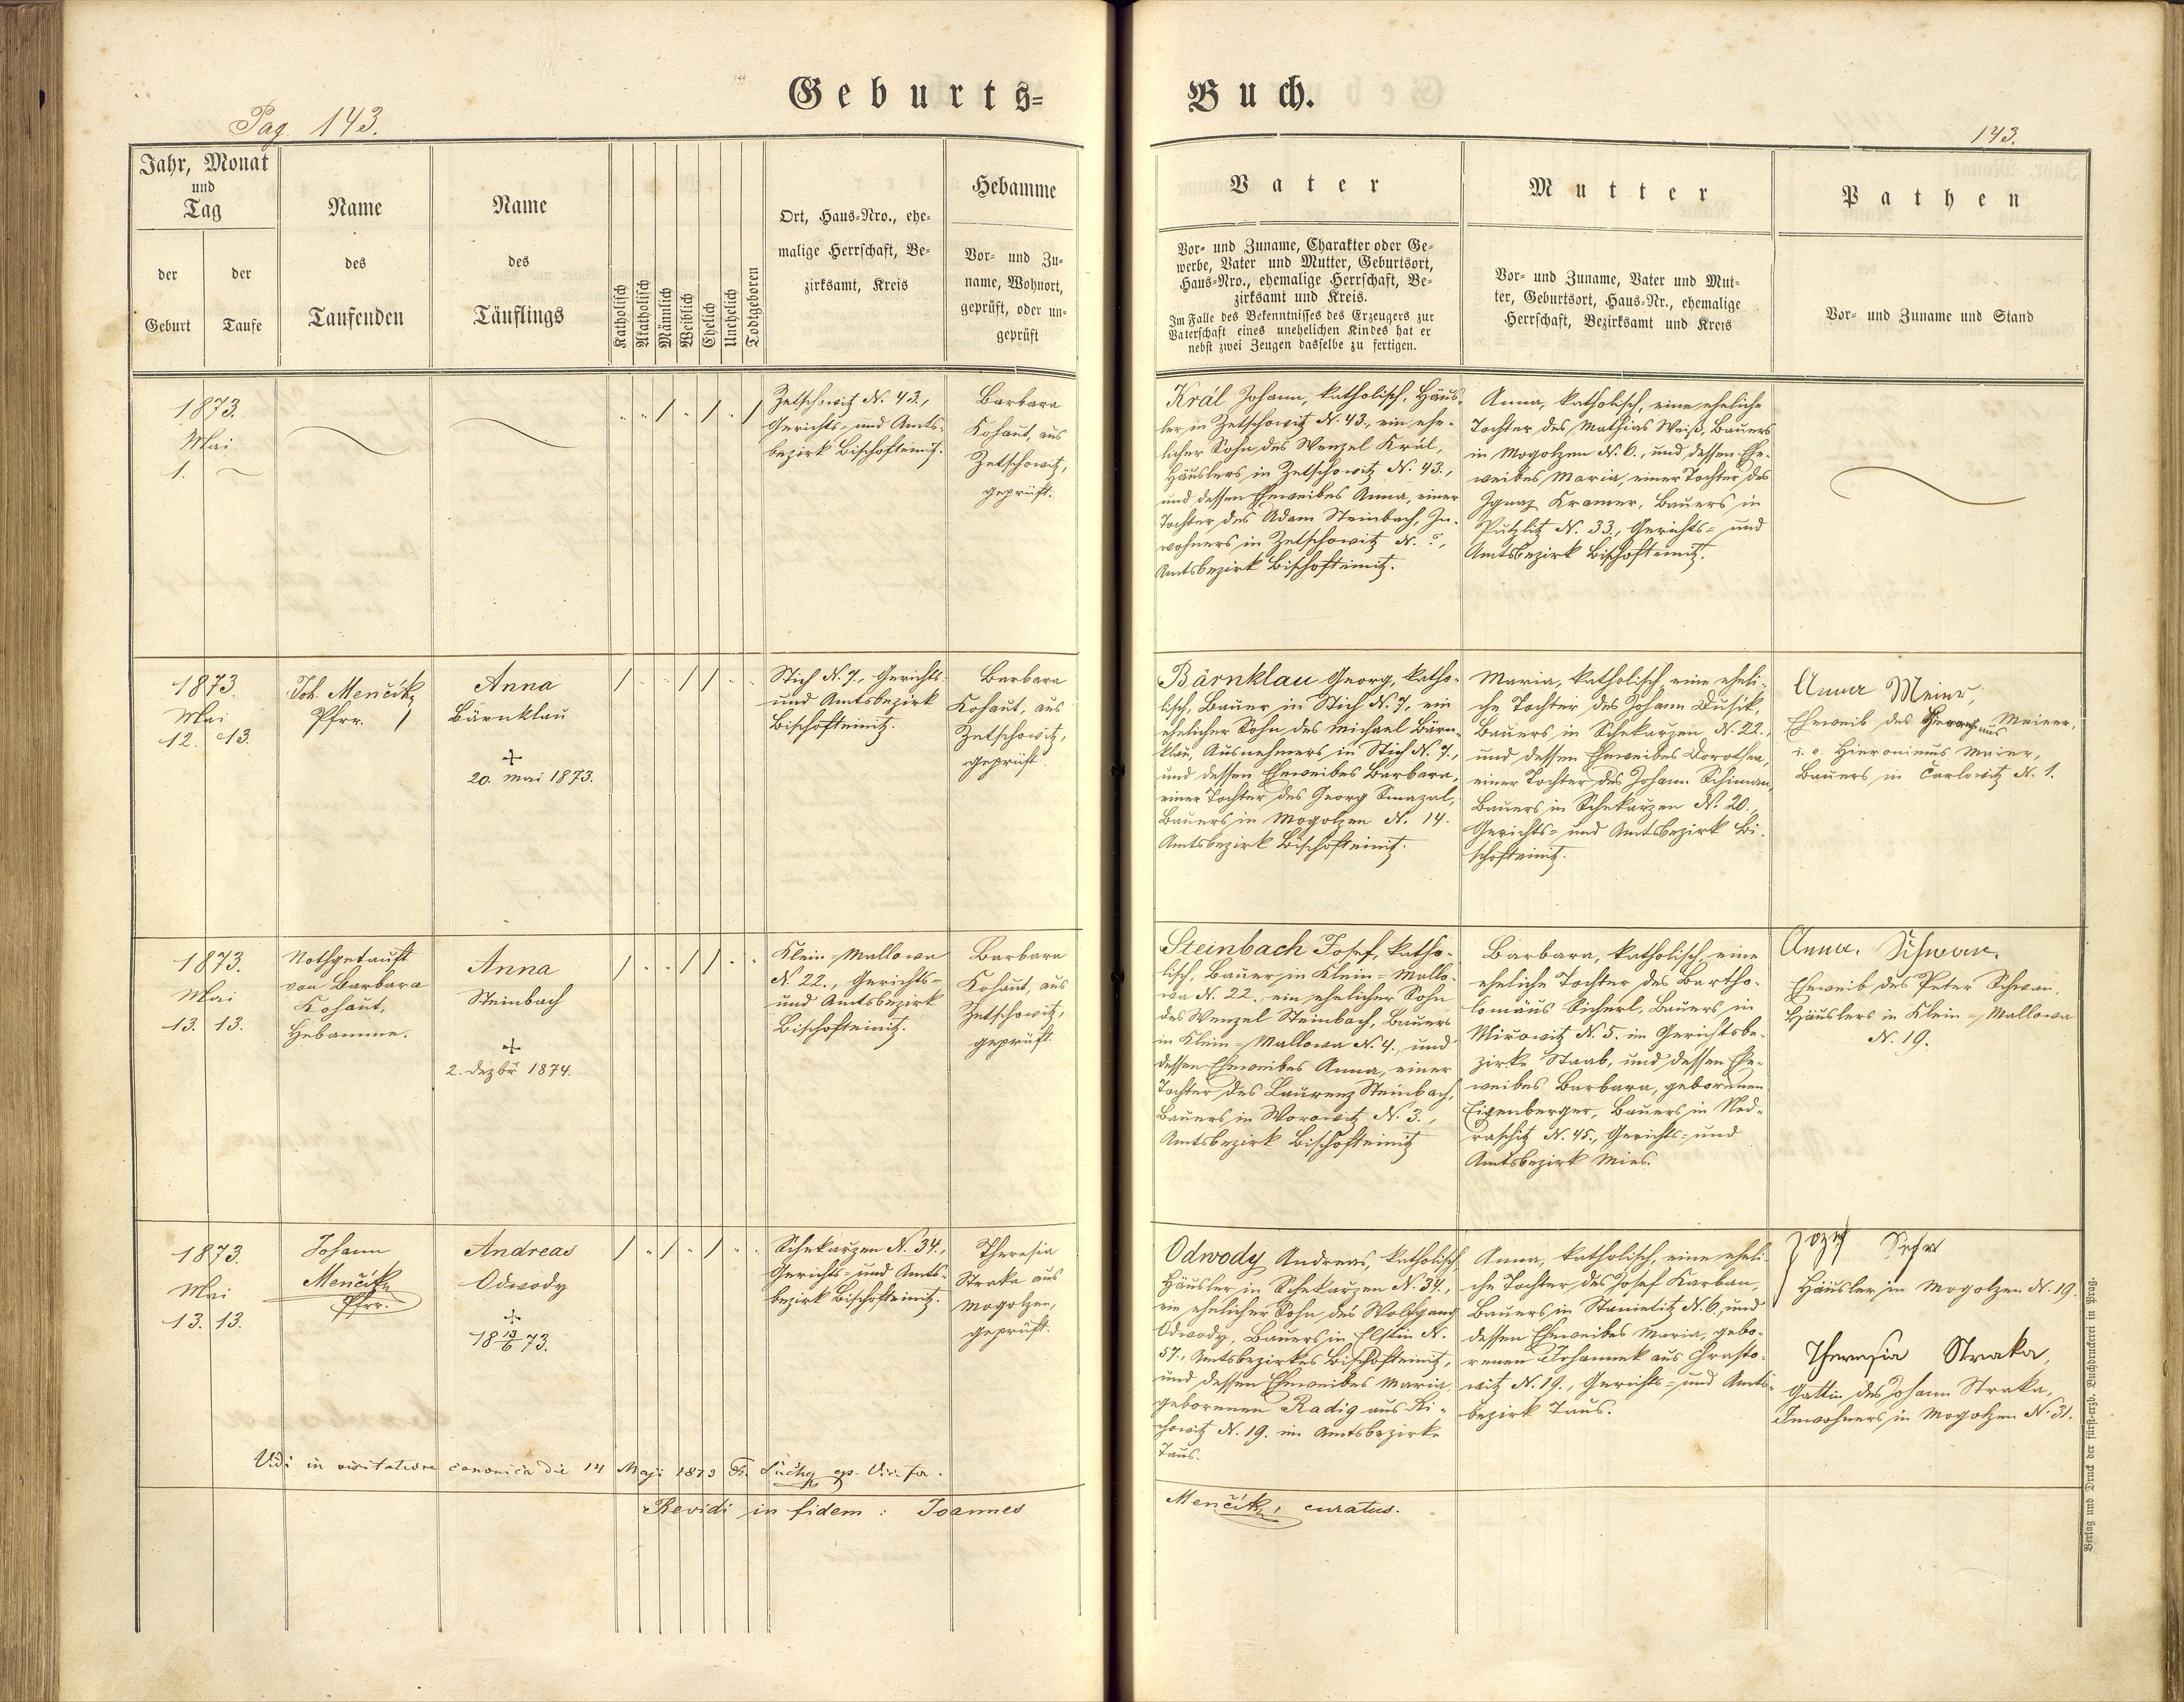 Geburts-
Buch.
Pag. 143.
143.
Jahr, Monat
und
Tag
der
Geburt
der
Taufe
Name
des
Taufenden
Name
des
Täuflings
Katholisch
Akatholisch
Männlich
Weiblich
Ehelich
Unehelich
Todtgeboren
Ort, Haus-Nro., ehe-
malige Herrschaft, Be-
zirksamt, Kreis
Hebamme
Vor- und Zu-
name, Wohnort,
geprüft, oder un-
geprüft
Vater
Vor- und Zuname, Charakter oder Ge-
werbe, Vater und Mutter, Geburtsort,
Haus-Nro., ehemalige Herrschaft, Be-
zirksamt und Kreis.
Im Falle des Bekenntnisses des Erzeugers zur
Vaterschaft eines unehelichen Kindes hat er
nebst zwei Zeugen dasselbe zu fertigen.
Mutter
Vor- und Zuname, Vater und Mut-
ter, Geburtsort, Haus-Nr., ehemalige
Herrschaft, Bezirksamt und Kreis
Pathen
Vor- und Zuname und Stand
1873.
Mai
1.
Zetschowitz N. 43.,
Gerichts- und Amts-
bezirk Bischofteinitz.
Barbara
Kohaut, aus
Zetschowitz,
geprüft.
Král Johann, katholisch, Häus-
ler in Zetschowitz N. 43., ein ehe-
licher Sohn des Wenzel Král,
Häuslers in Zetschowitz N. 43.,
und dessen Eheweibes Anna, einer
Tochter des Adam Steinbach, In-
wohners in Zetschowitz N. ?,
Amtsbezirk Bischofteinitz.
Anna, katholisch, eine eheliche
Tochter des Mathias Weiß, Bauers
in Mogolzen N. 6., und dessen Ehe-
weibes Maria, einer Tochter des
Ignaz Kramer, Bauers in
Putzlitz N. 33., Gerichts- und
Amtsbezirk Bischofteinitz.
1873.
Mai
12. 13.
Joh. Menčik
Pfrr.
Anna
Bärnklau
+
20. Mai 1873.
Stich N. 7., Gerichts-
und Amtsbezirk
Bischofteinitz.
Barbara
Kohaut, aus
Zetschowitz,
geprüft.
Bärnklau Georg, katho-
lisch, Bauer in Stich N. 7., ein
ehelicher Sohn des Michael Bärn-
klau, Ausnehmers in Stich N. 7.,
und dessen Eheweibes Barbara,
einer Tochter des Georg Smazal,
Bauers in Mogolzen N. 14.
Amtsbezirk Bischofteinitz.
Maria, katholisch, eine eheli-
che Tochter des Johann Dusik,
Bauers in Schekarzen N. 22.,
und dessen Eheweibes Dorothea,
einer Tochter des Johann Schiman,
Bauers in Schekarzen N. 20.,
Gerichts- und Amtsbezirk Bi-
schofteinitz.
Anna Meier,
Eheweib des Meierr,
i. e. Hieronimus Maier,
Bauers in Carlowitz N. 1.
1873.
Mai
13. 13.
Nothgetauft
von Barbara
Kohaut,
Hebamme.
Anna
Steinbach
+
2. Dezbr 1874.
Klein-Mallowa
N. 22., Gerichts-
und Amtsbezirk
Bischofteinitz.
Barbara
Kohaut, aus
Zetschowitz,
geprüft.
Steinbach Josef, katho-
lisch, Bauer in Klein-Mallo-
wa N. 22. ein ehelicher Sohn
des Wenzel Steinbach, Bauers
in Klein-Mallowa N. 4., und
dessen Eheweibes Anna, einer
Tochter des Laurenz Steinbach,
Bauers in Worowitz N. 3.,
Amtsbezirk Bischofteinitz
Barbara, katholisch, eine
eheliche Tochter des Bartho-
lomäus Sicherl, Bauers, in
Mirowitz N. 5. im Gerichtsbe-
zirke Staab, und dessen Ehe-
weibes Barbara, geborenen
Eigenberger, Bauers in Ned-
raschitz N. 45., Gerichts- und
Amtsbezirk Mies.
Anna. Schwan.
Eheweib des Peter Schwan,
Häuslers in Klein-Mallowa
N. 19.
1873.
Mai
13. 13.
Johann
Menčik
Pfrr.
Andreas
Odwody
+
18 13/6 73.
Schekarzen N. 34.,
Gerichts- und Amts-
bezirk Bischofteinitz.
Theresia
Straka aus
Mogolzen,
geprüft.
Odwody Andreas, katholisch,
Häusler in Schekarzen N. 34.,
ein ehelicher Sohn des Wolfgang
Odwody, Bauers in Elstin N.
57., Amtsbezirkes Bischofteinitz,
und dessen Eheweibes Maria,
geborenen Radig aus Ki-
chowitz N. 19. im Amtsbezirke
Taus.
Anna, katholisch, eine eheli-
che Tochter des Josef Karban,
Bauers in Stanietitz N. 6, und
dessen Eheweibes Maria, gebo-
renen Johannek aus Chrasto-
witz N. 19., Gerichts- und Amts-
bezirk Taus.
Jozef
Häusler in Mogolzen N. 19.
Theresia Straka,
Gattin des Johann Straka,
Inwohners in Mogolzen N. 31.
Vidi in visitatione canonica die 14 Maji 1873
Revidi in fidem: Joannes
Menčik, curatus.
Verlag und Druck der fürst-erzb. Buchdruckerei in Prag.